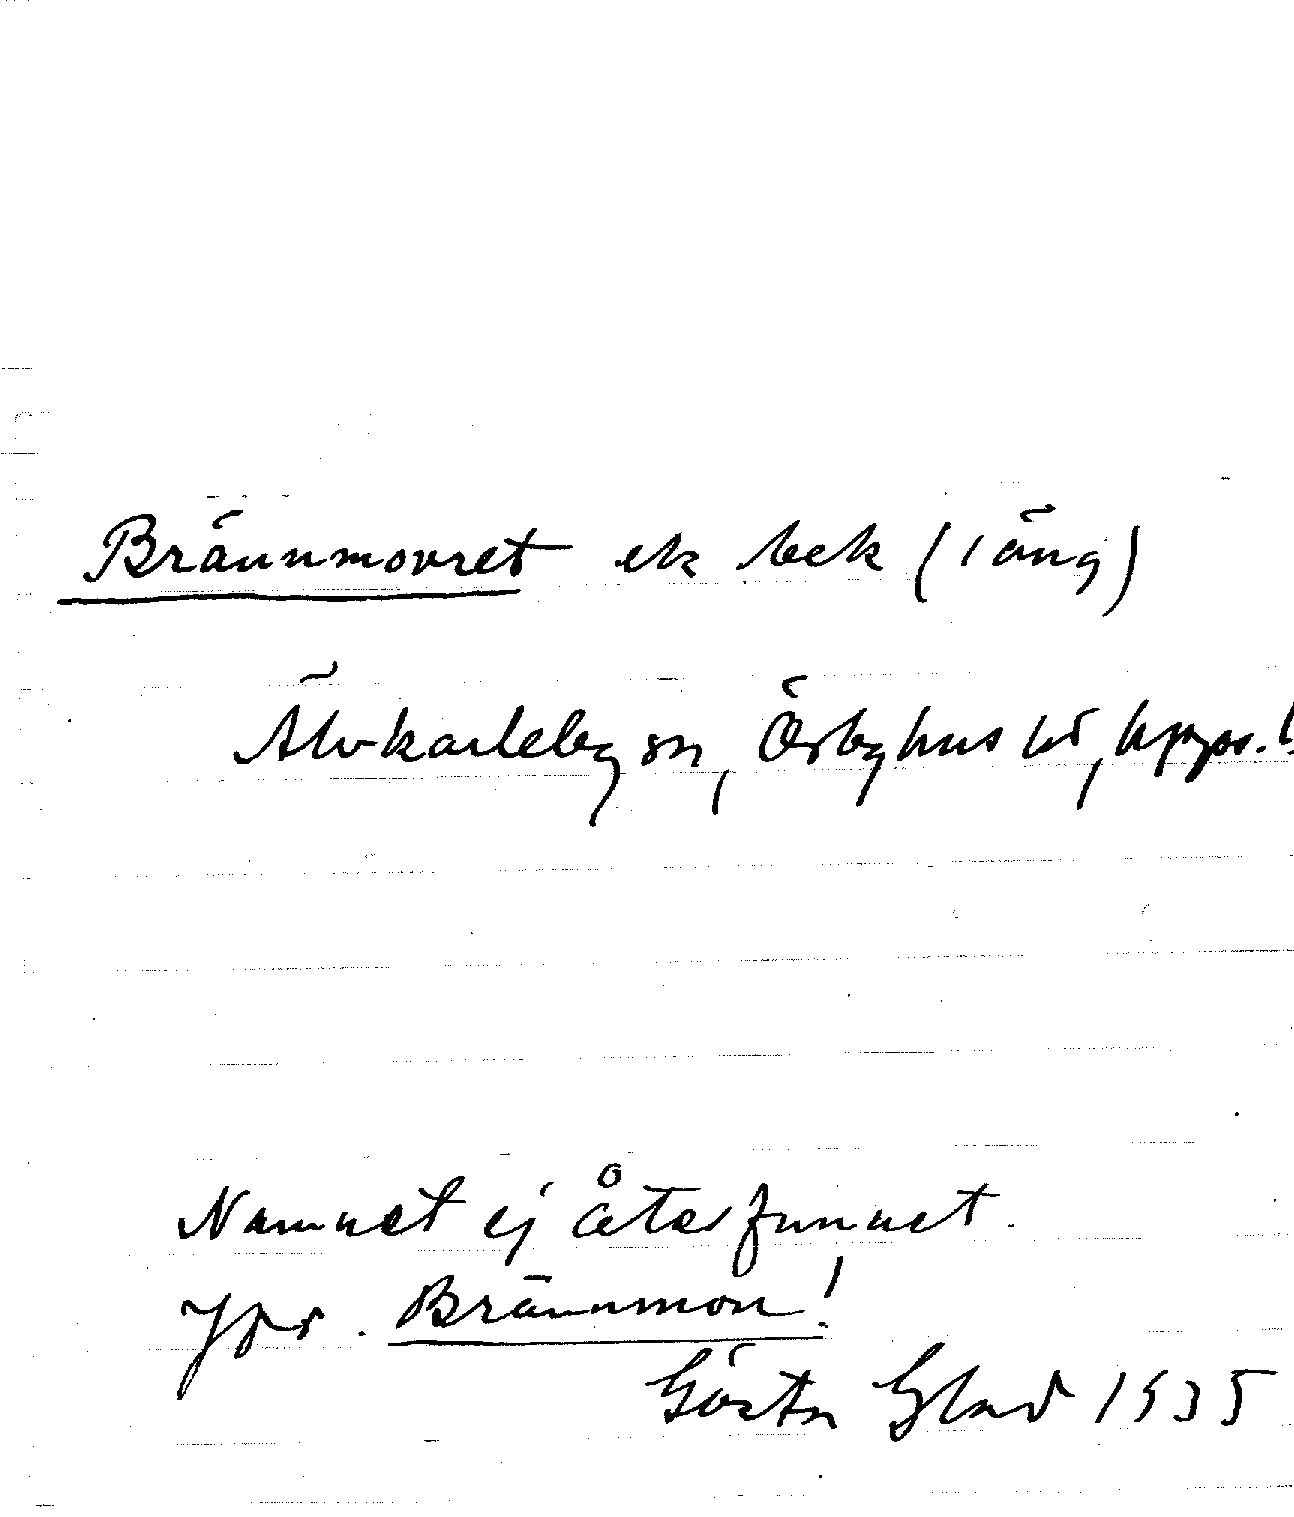 Brännmovret ek bek (i äng)
Älvkarleby sn, Örbyhus hd, Upps. l.
Namnet ej återfunnet.
Jfr. Brännmon!
Gösta Glad 1935